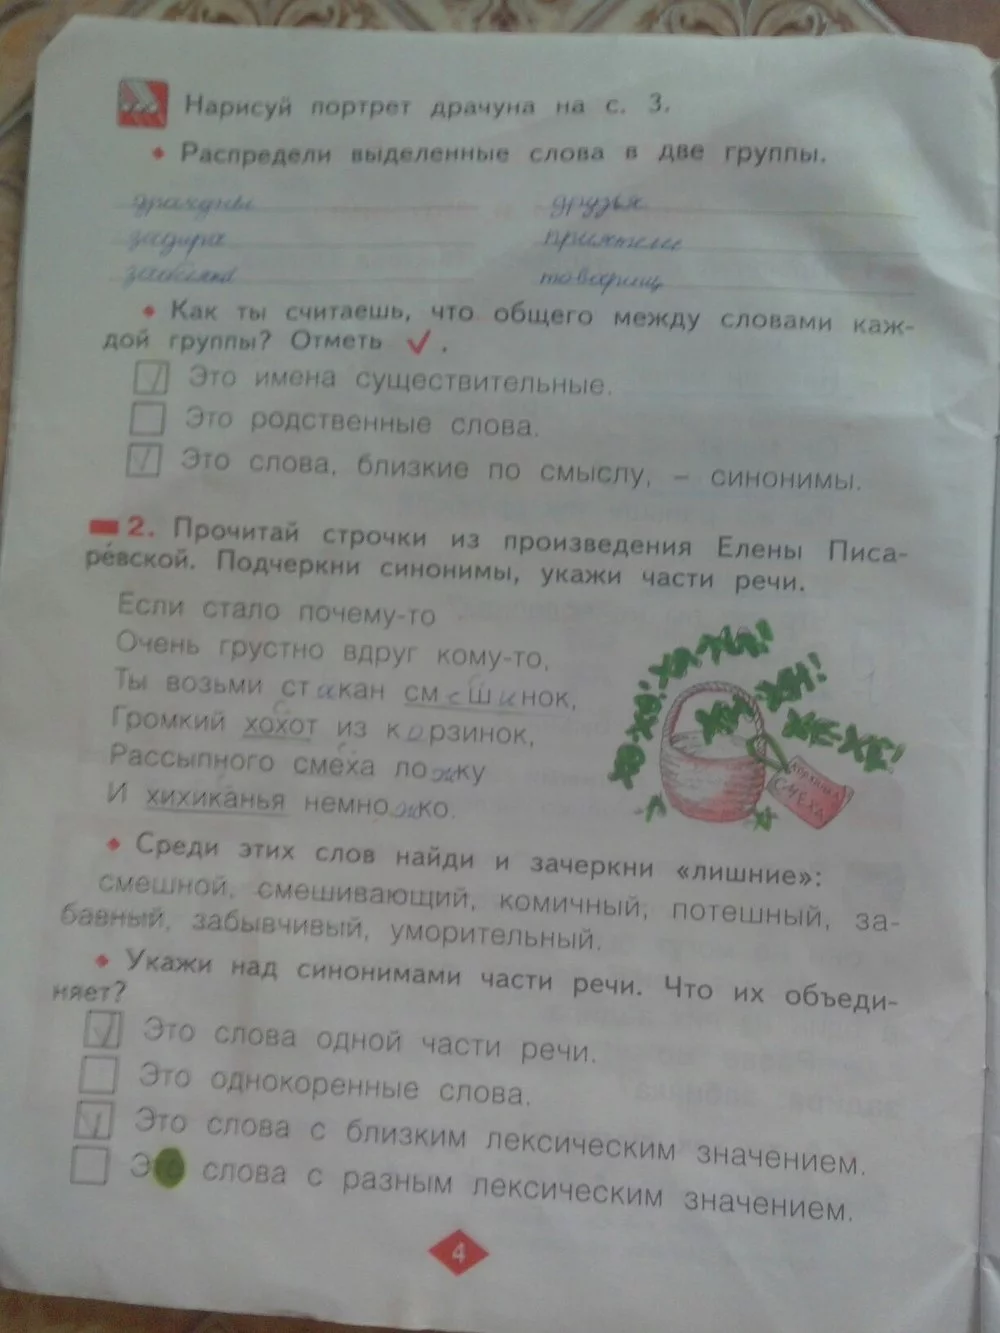 Нарисуй портрет драчуна на с. 3.
• Распредели выделенные слова в две группы.
драчуны друзья
задира приятели
забияка товарищ
• Как ты считаешь, что общего между словами каж-
дой группы? Отметь ✓.
Это имена существительные.
Это родственные слова.
Это слова, близкие по смыслу, – синонимы.
2. Прочитай строчки из произведения Елены Писа-
ре́вской. Подчеркни синонимы, укажи части речи.
Если стало почему-то
Очень грустно вдруг кому-то,
Ты возьми стакан смешинок,
Громкий хохот из корзинок,
Рассыпного смеха ложку
И хихиканья немножко.
ХО-ХО! ХА-ХА!
ХИ-ХИ!
ХЕ-ХЕ!
КОРЗИНКА
СМЕХА
• Среди этих слов найди и зачеркни «лишние»:
смешной, смешивающий, комичный, потешный, за-
бавный, забывчивый, уморительный.
• Укажи над синонимами части речи. Что их объеди-
няет?
Это слова одной части речи.
Это однокоренные слова.
Это слова с близким лексическим значением.
Это слова с разным лексическим значением.
4